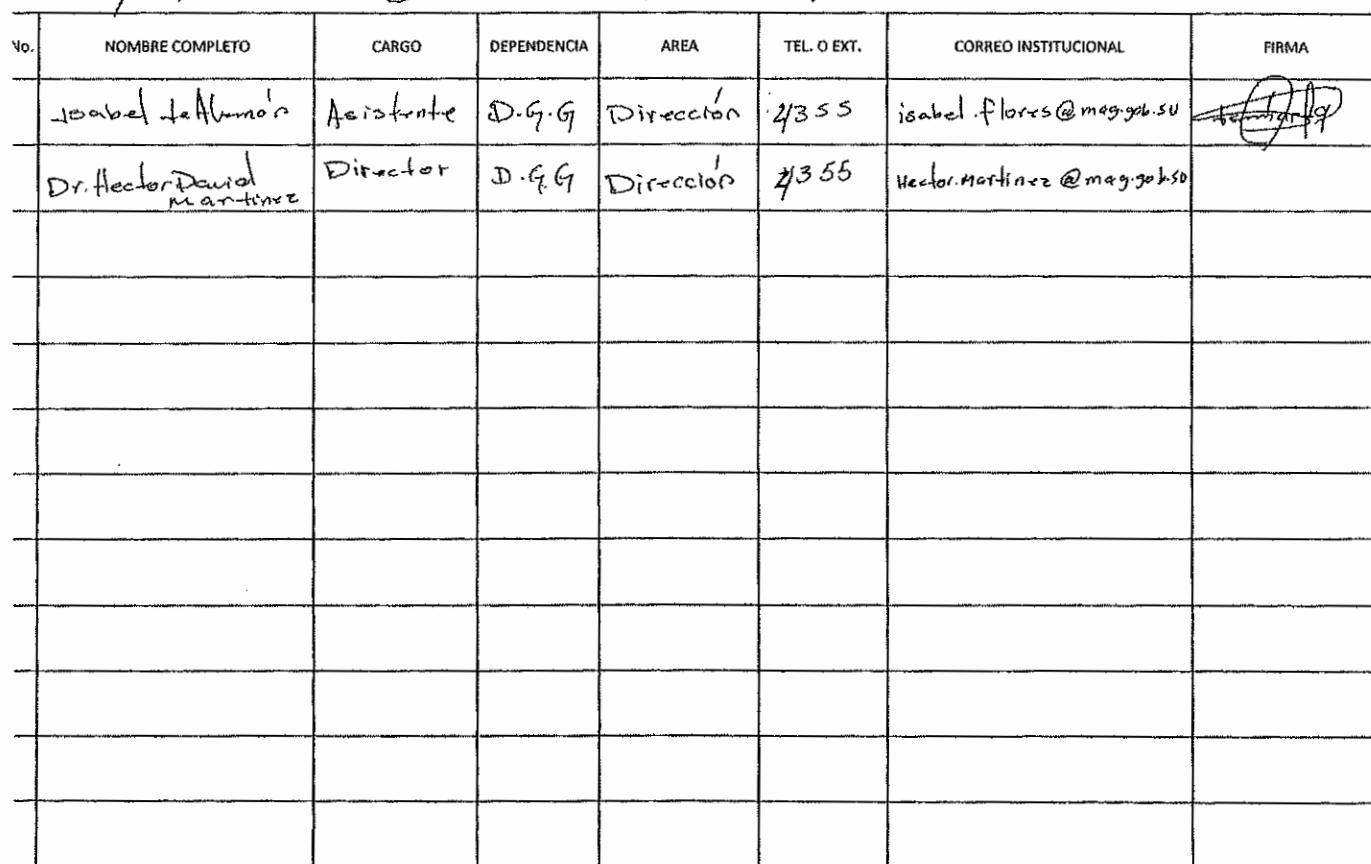 No. NOMBRE COMPLETO CARGO DEPENDENCIA AREA TEL. O EXT. CORREO INSTITUCIONAL FIRMA
Isabel Asistente D.G.G Dirección 4355 isabel.flores@mag.gob.sv
Dr. Hector David Martinez Director D.G.G Dirección 4355 Hector.Martinez@mag.gob.sv